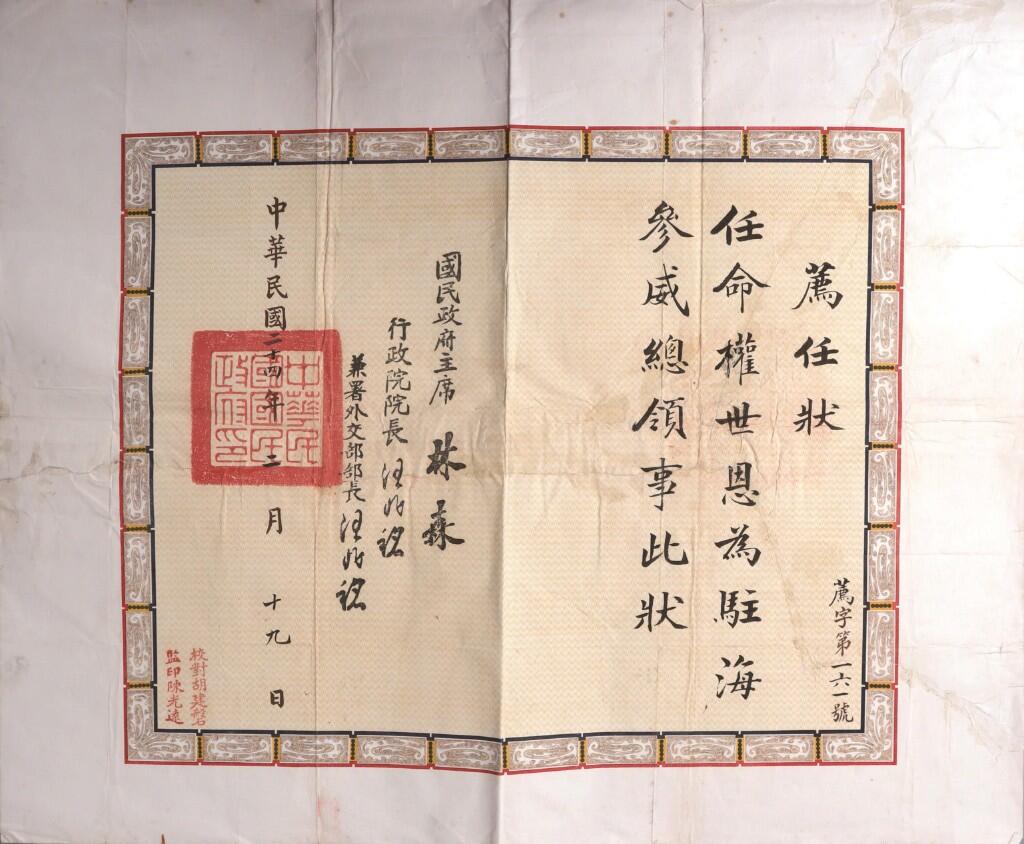 薦任狀
薦字第一六一號
任命權世恩為駐海
參威總領事此狀
國民政府主席 林森
行政院院長 汪兆銘
兼署外交部部長 汪兆銘
中華民國二十四年二月十九日
中華民
國國民
政府印
校對胡建磐
監印陳光遠